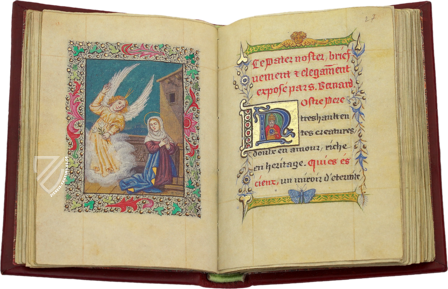 27
Le Pater noster, brief
uement & elegamēnt
exposé par S. Bernard
Ostre Pere
N
tres haut en
tes creatures
doulx en amour, riche
en heritage. Qui es es
cieux, un miroir d'eternit